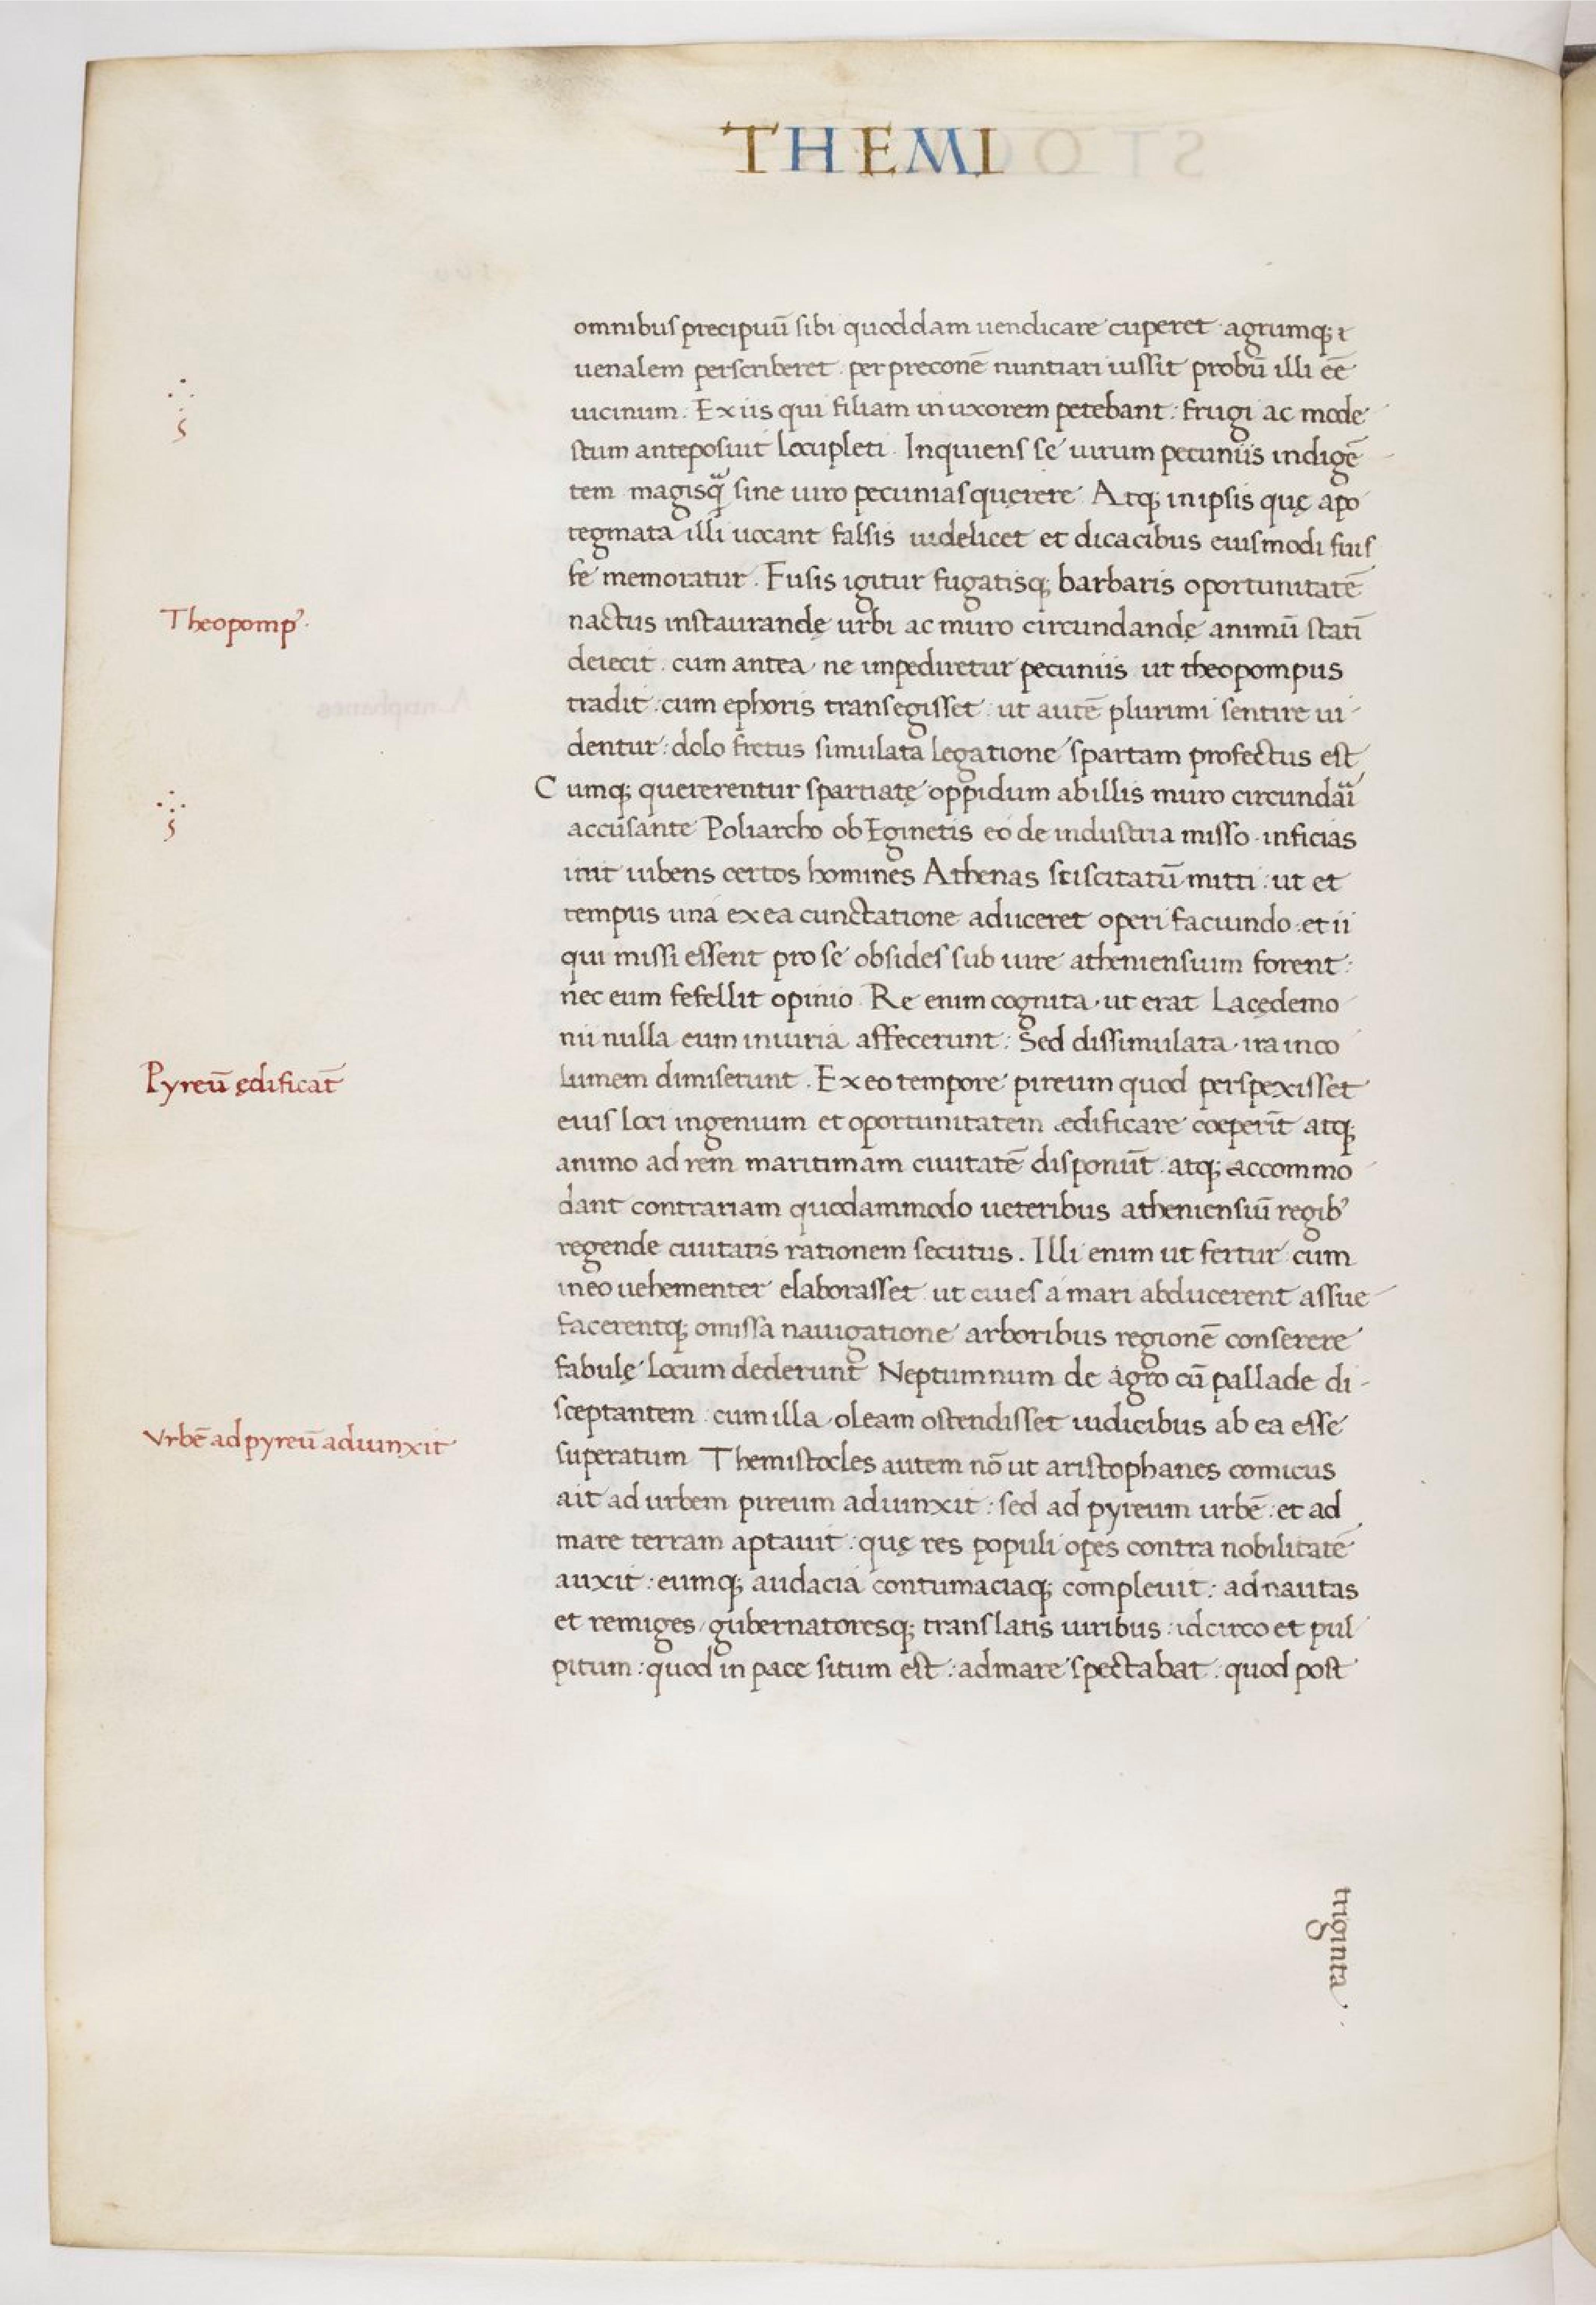 THEMI
omnibus precipuū sibi quoddam uendicare cuperet agrumq;
uenalem perscriberet. per preconē nuntiari iussit probū illi eē
uicinum. Ex iis qui filiam in uxorem petebant: frugi ac mode
stum anteposuit locupleti. Inquiens se uirum pecuniis indigē
tem magisq̄ sine uiro pecunias querere. Atq; in ipsis quę apo
tegmata illi uocant falsis uidelicet et dicacibus eiusmodi fuis
se memoratur. Fusis igitur fugatisq; barbaris oportunitatē
Theopomp⁹.
nactus instaurandę urbi ac muro circundandę animū statī
deiecit. cum antea ne impediretur pecuniis ut theopompus
tradit: cum ephoris transegisset: ut autē plurimi sentire ui
dentur: dolo fretus simulata legatione spartam profectus est
Cumq; quererentur spartiatę oppidum ab illis muro circundari
accusante Poliarcho ob Eginetis eo de industria misso. inficias
iuit iubens certos homines Athenas sciscitatū mitti: ut et
tempus una ex ea cunctatione aduceret operi faciundo. et ii
qui missi essent pro se obsides sub iure atheniensium forent:
nec eum fefellit opinio. Re enim cognita. ut erat Lacędemo
nii nulla eum iniuria affecerunt: Sed dissimulata ira inco
Pyreū ędificat̄
lumem dimiserunt. Ex eo tempore pireum quod perspexisset
eius loci ingenium et oportunitatem ędificare coeperīt atq;
animo ad rem maritimam ciuitatē disponūt. atq; accommo
dant contrariam quodammodo ueteribus atheniensiū regib⁹
regende ciuitatis rationem secutus. Illi enim ut fertur cum
in eo uehementer elaborasset ut ciues a mari abducerent assue
facerentq; omissa nauigatione arboribus regionē conserere
fabulę locum dederunt Neptumnum de agro cū pallade di
sceptantem. cum illa oleam ostendisset iudicibus ab ea esse
Vrbē ad pyreū adiunxit
superatum Themistocles autem nō ut aristophanes comicus
ait ad urbem pireum adiunxit: sed ad pyreum urbē: et ad
mare terram aptauit: quę res populi opes contra nobilitatē
auxit: eumq; audacia contumaciaq; compleuit: ad nautas
et remiges gubernatoresq; translatis uiribus: idcirco et pul
pitum: quod in pace situm est: ad mare spectabat: quod post
triginta